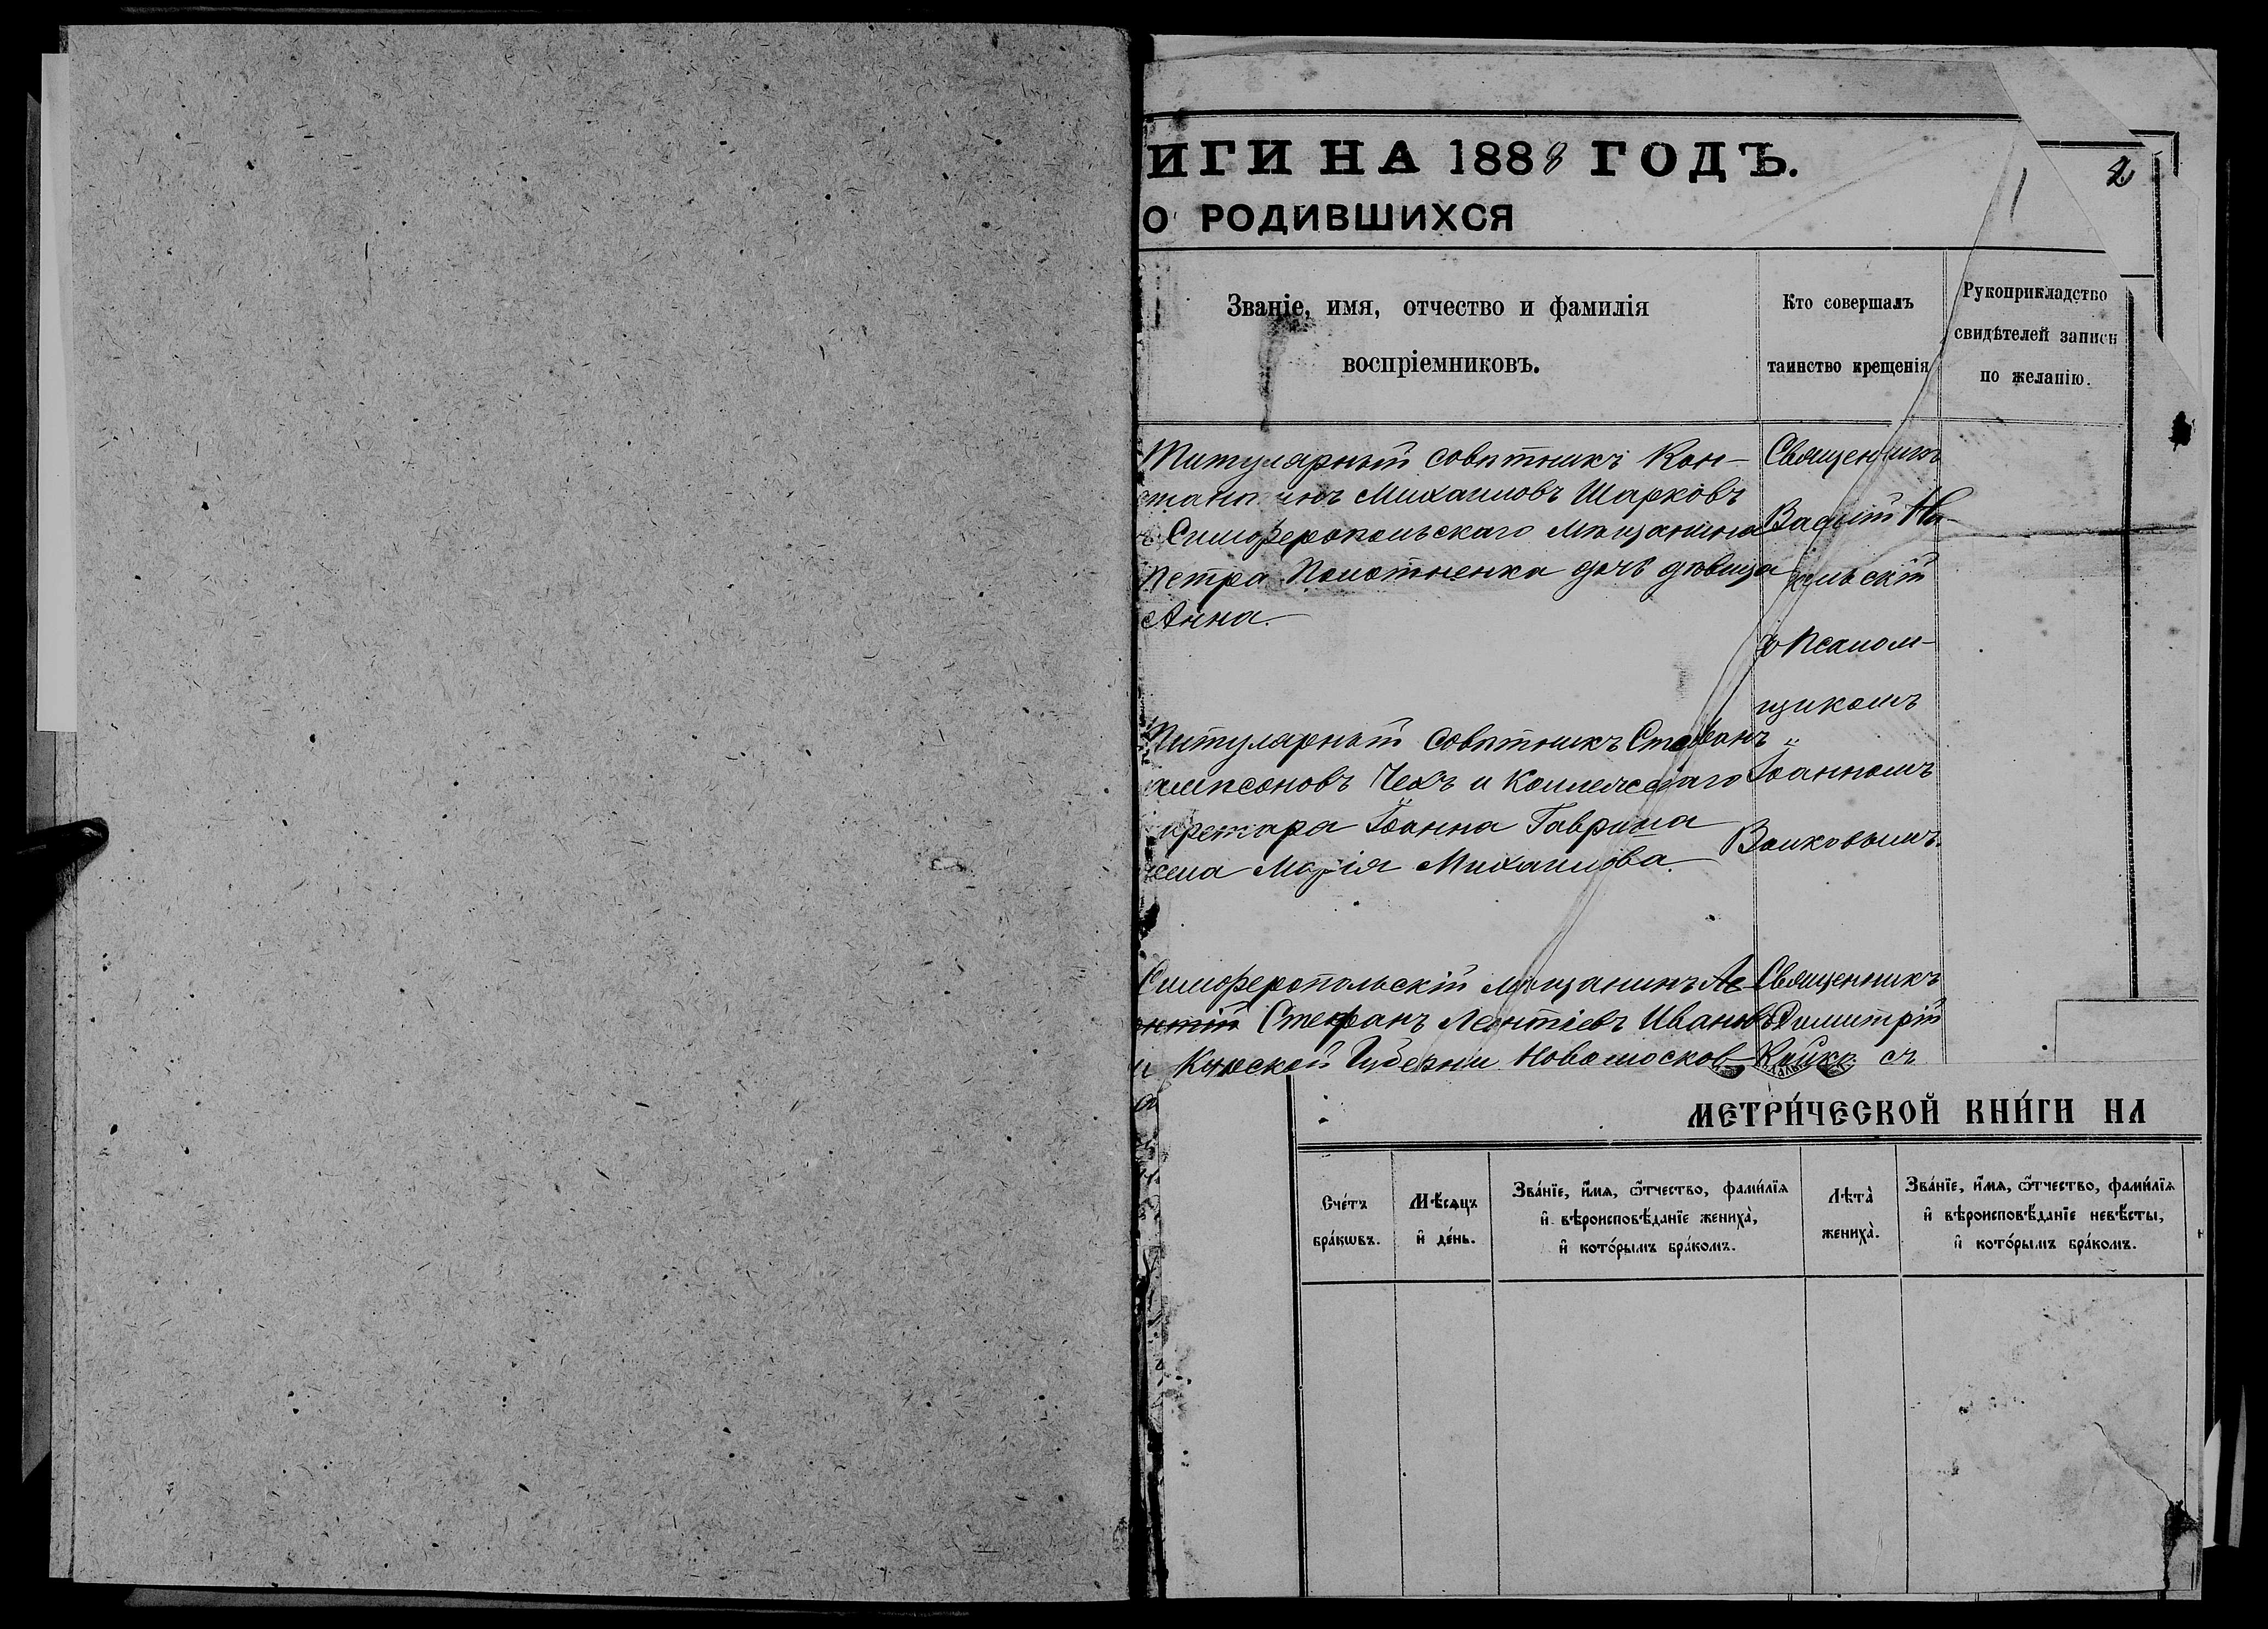 ИГИ НА 1888 ГОДЪ.
2
О РОДИВШИХСЯ
Званіе, имя, отчество и фамилія
воспріемниковъ.
Кто совершалъ
таинство крещенія
Рукоприкладство
свидѣтелей записи
по желанію.
Титулярный совѣтникъ Кон-
Михаиловъ Шарковъ
Симферопольскаго мѣщанина
Петра Полотненка дочь дѣвица
Анна.
Священникъ
псалом-
щикомъ
Іоанномъ
Волковымъ.
Титулярный совѣтникъ Стефанъ
Чехъ и Коллежскаго
кретаря Іоанна Гаврила
жена Марія Михаилова.
Симферопольскій мѣщанинъ Ле-
онтій Стефанъ Леонтіевъ Ивановъ
и Курской Губерніи Новомосков-
Священникъ
Димитрій
Койко съ
МЕТРИ́ЧЕСКОЙ КНИ́ГИ НА
Сче́тъ
бра́кѡвъ.
Мѣ́сяцъ
и҆ де́нь.
Зва́нїе, и҆́мя, ѻ҆́тчество, фами́лїя
и҆ вѣроисповѣ́данїе жениха̀,
и҆ кото́рымъ бра́комъ.
Лѣта̀
жениха̀.
Зва́нїе, и҆́мя, ѻ҆́тчество, фами́лїя
и҆ вѣроисповѣ́данїе невѣ́сты,
и҆ кото́рымъ бра́комъ.